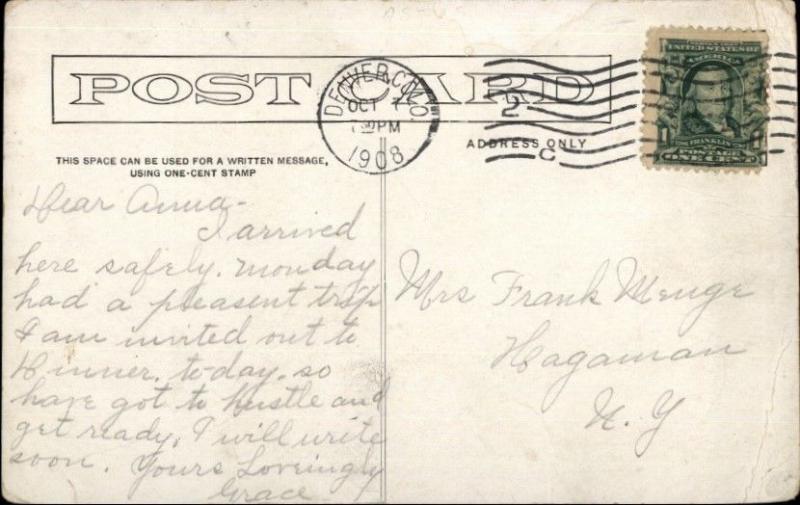 POST CARD
DENVER, COLO.
OCT 7
7 30 PM
1908
2
C
UNITED STATES OF
AMERICA
FRANKLIN
POSTAGE
1 ONE CENT 1
ADDRESS ONLY
THIS SPACE CAN BE USED FOR A WRITTEN MESSAGE,
USING ONE-CENT STAMP
Dear Anna-
I arrived
here safely. Monday
had a pleasent trip
I am invited out to
Dinner. to-day. so
have got to hustle and
get ready, I will write
soon. Yours Loveingly
Grace
Mrs Frank Menge
Hagaman
N. Y